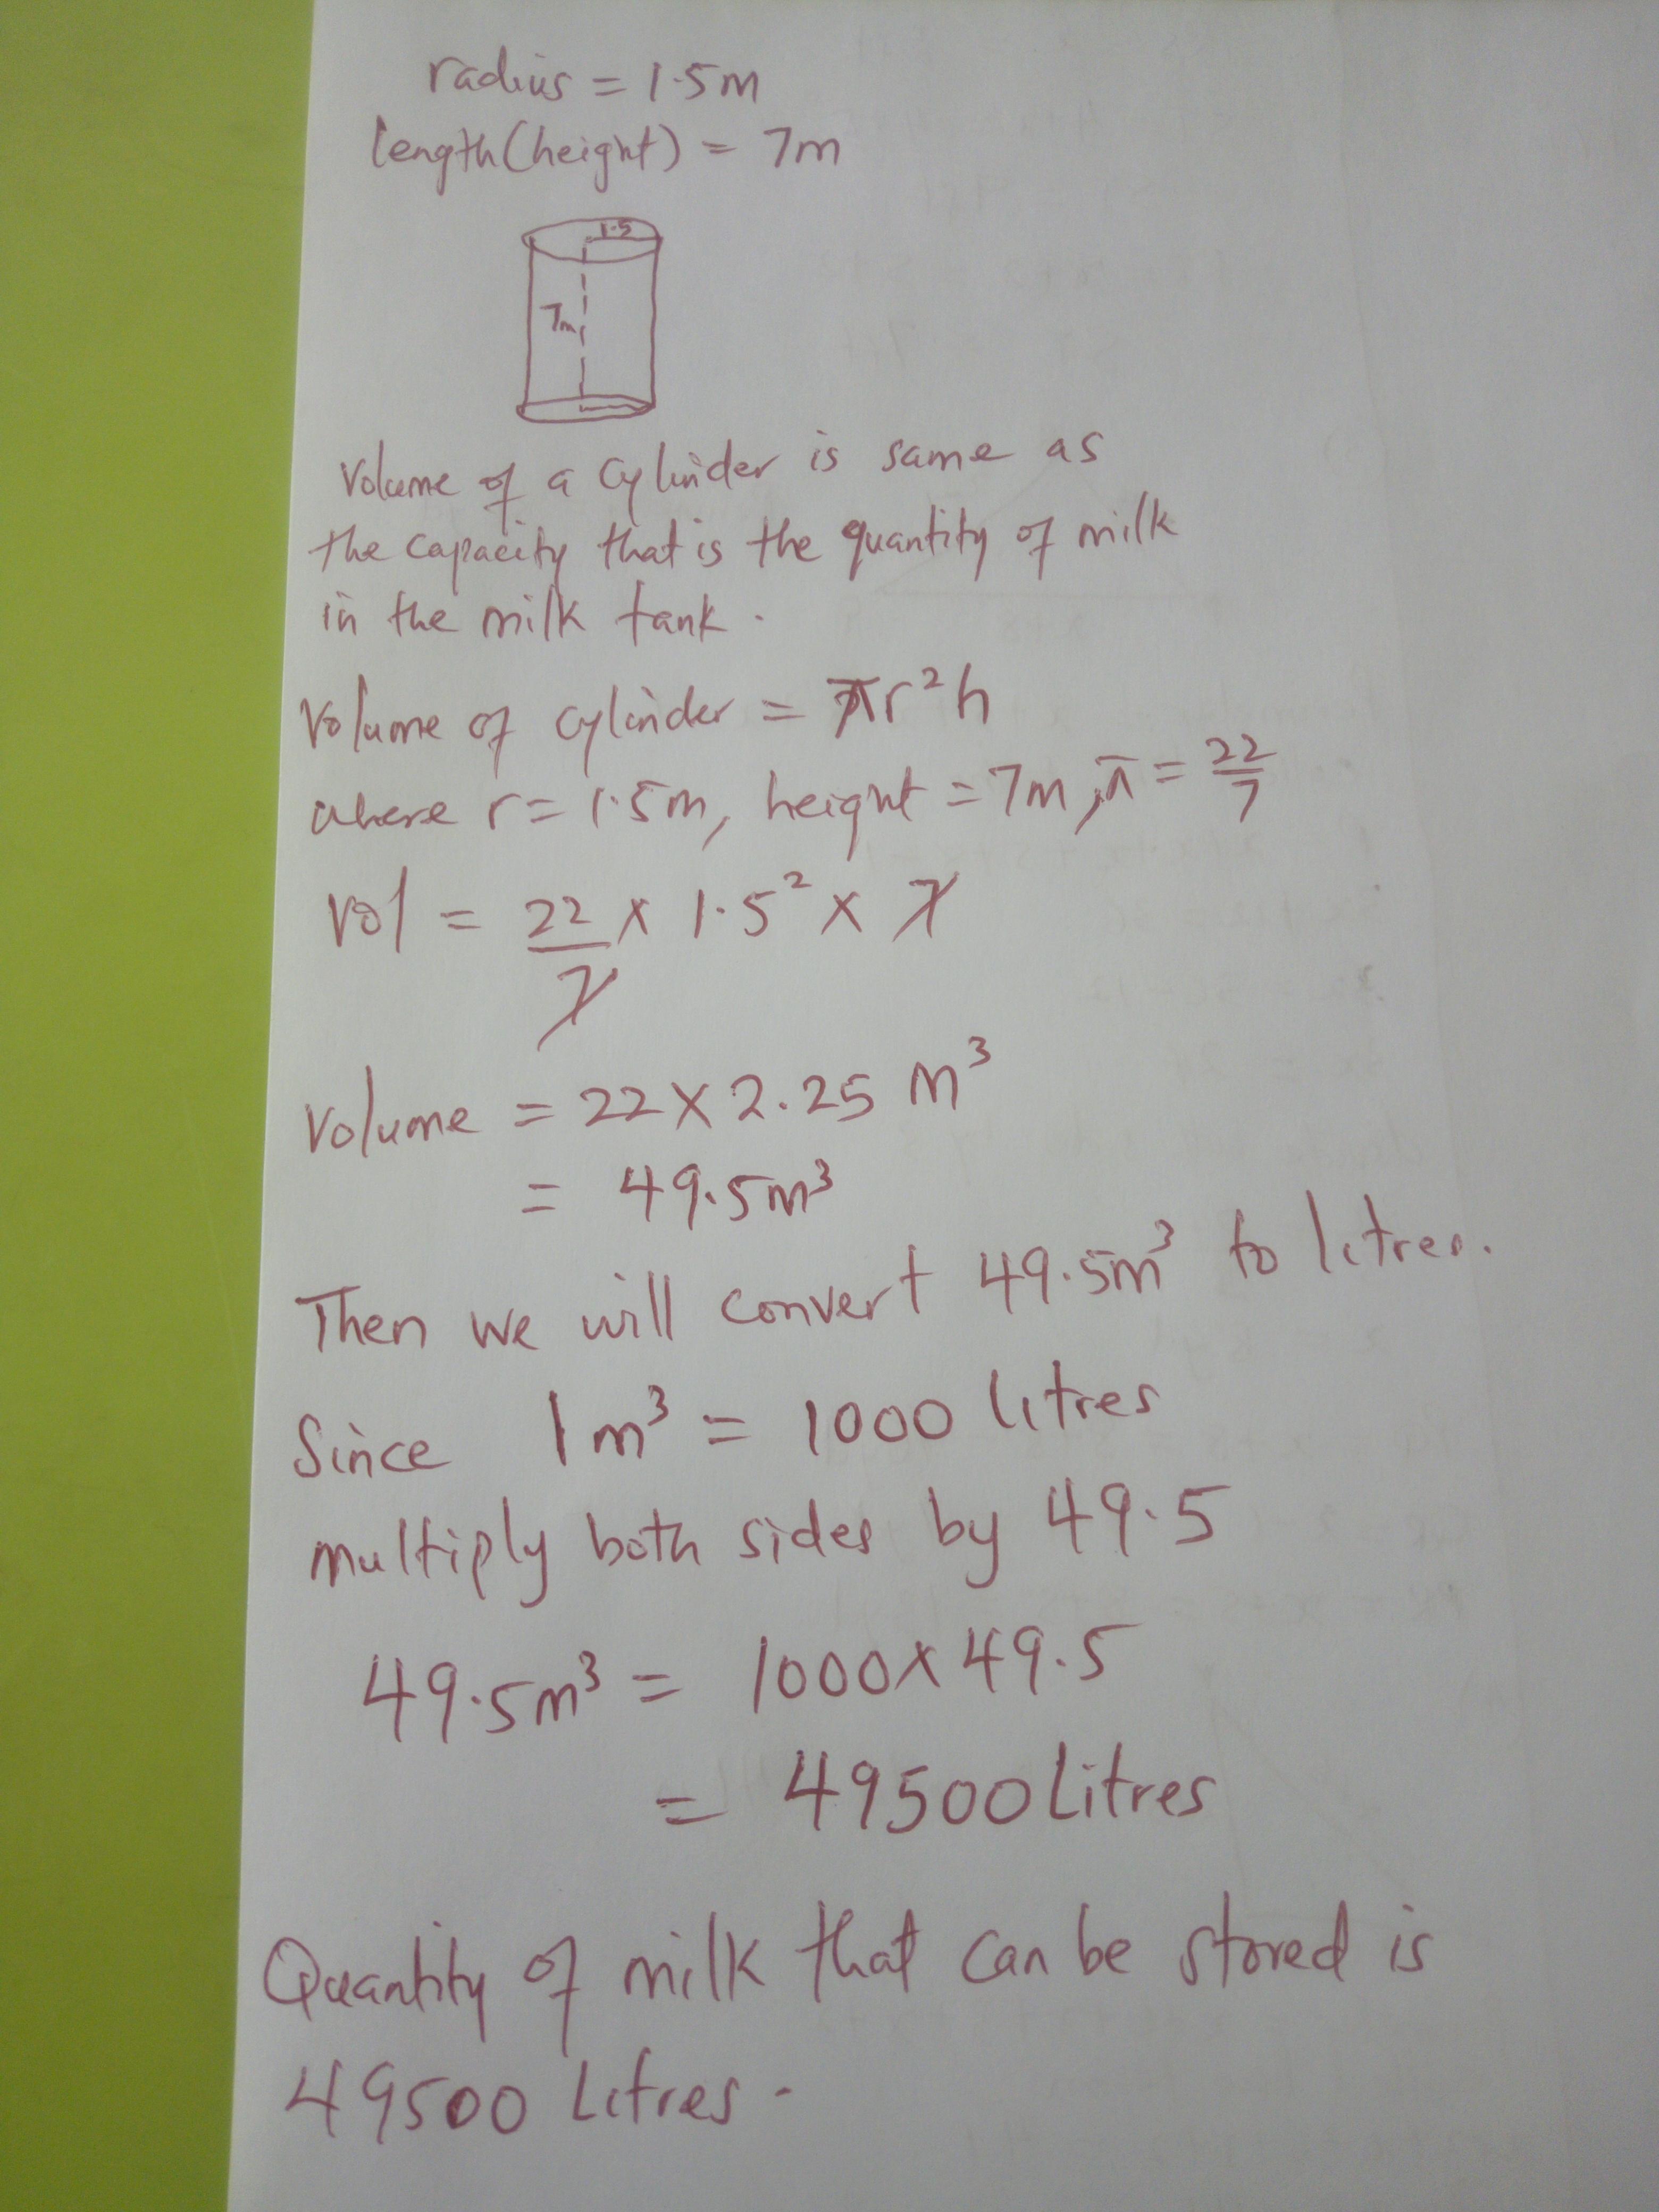 radius = 1.5m
length(height) = 7m
1.5
7m
Volume of a cylinder is same as
the capacity that is the quantity of milk
in the milk tank.
Volume of cylinder = πr²h
where r = 1.5m, height = 7m, π = 22/7
Vol = 22/7 × 1.5² × 7
Volume = 22 × 2.25 m³
= 49.5m³
Then we will convert 49.5m³ to litres.
Since 1m³ = 1000 litres
multiply both sides by 49.5
49.5m³ = 1000 × 49.5
= 49500 Litres
Quantity of milk that can be stored is
49500 Litres.